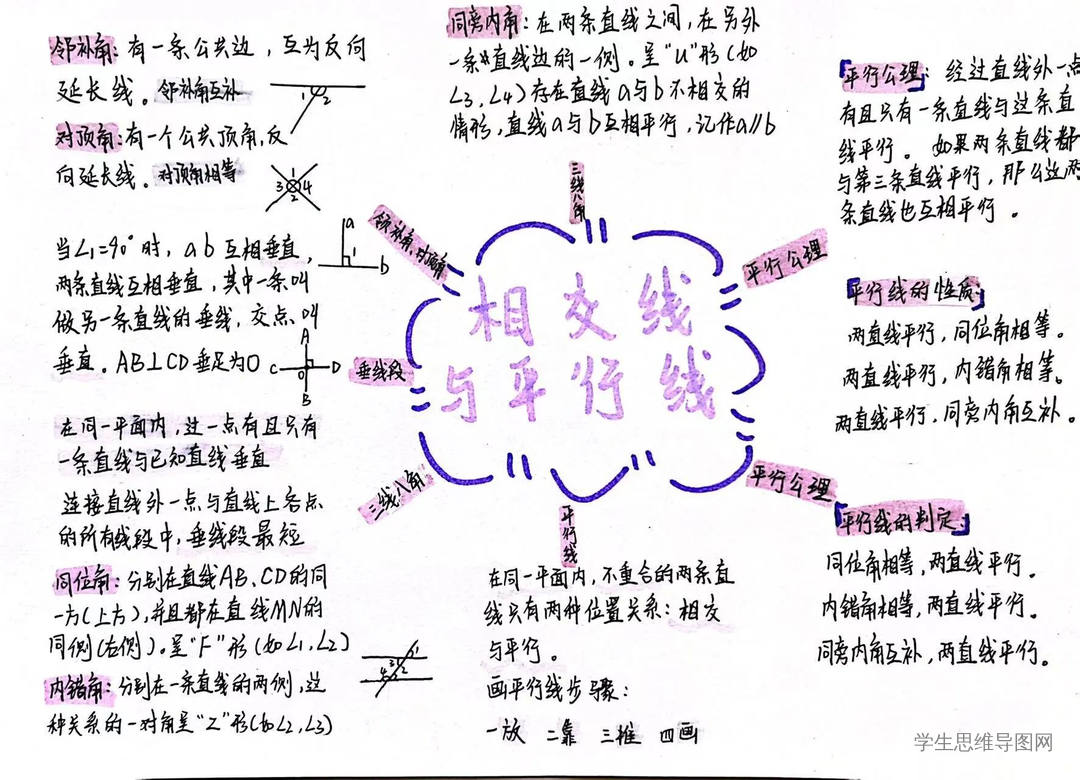 邻补角：有一条公共边，互为反向
延长线。邻补角互补
1 2
对顶角：有一个公共顶角，反
向延长线。对顶角相等
1
3 4
2
当∠1=90°时，a b 互相垂直，
两条直线互相垂直，其中一条叫
做另一条直线的垂线，交点叫
垂直。AB⊥CD垂足为O
a
1
b
A
C O D
B
在同一平面内，过一点有且只有
一条直线与已知直线垂直
连接直线外一点与直线上各点
的所有线段中，垂线段最短
同位角：分别在直线AB、CD的同
一方(上方)，并且都在直线MN的
同侧(右侧)。呈"F"形(如∠1,∠2)
内错角：分别在一条直线的两侧，这
种关系的一对角呈"Z"形(如∠2,∠3)
1
3
4 2
同旁内角：在两条直线之间，在另外
一条直线边的一侧。呈"U"形(如
∠3,∠4)存在直线a与b不相交的
情形，直线a与b互相平行，记作a∥b
三线八角
领补角，对顶角
垂线段
三线八角
平行线
平行公理
平行公理
相交线
与平行线
在同一平面内，不重合的两条直
线只有两种位置关系：相交
与平行。
画平行线步骤：
一放 二靠 三推 四画
平行公理：经过直线外一点
有且只有一条直线与这条直
线平行。如果两条直线都
与第三条直线平行，那么这两
条直线也互相平行。
平行线的性质：
两直线平行，同位角相等。
两直线平行，内错角相等。
两直线平行，同旁内角互补。
平行线的判定
同位角相等，两直线平行。
内错角相等，两直线平行。
同旁内角互补，两直线平行。
学生思维导图网